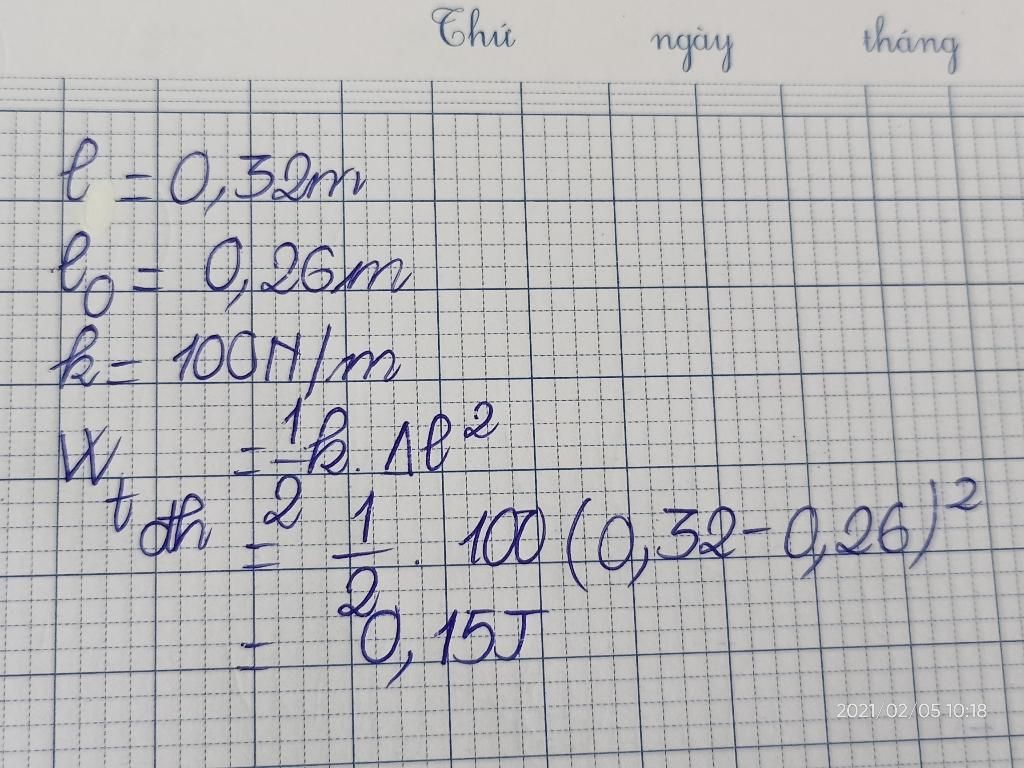 Thứ ngày tháng
l = 0,32m
l0 = 0,26m
k = 100N/m
Wtđh = 1/2 k. Δl²
= 1/2 . 100 (0,32 - 0,26)²
= 0,15J
2021/02/05 10:18